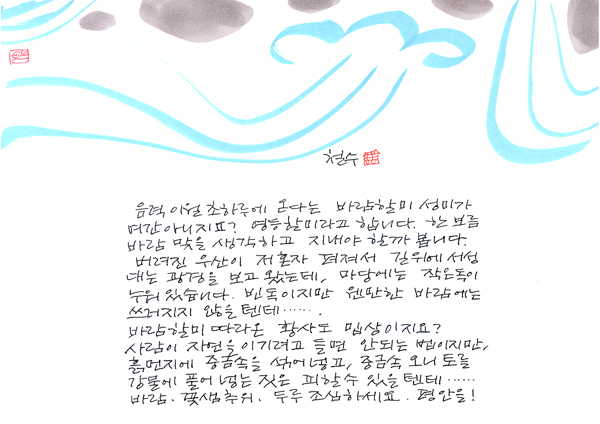 철수
음력 이월 초하루에 온다는 바람할미 성미가
여간 아니지요? 영등할미라고 합니다. 한 보름
바람 맞을 생각하고 지내야 할까 봅니다.
버려진 우산이 저혼자 펴져서 길위에 서성
대는 광경을 보고 왔는데, 마당에는 작은독이
누워 있습니다. 빈독이지만 웬만한 바람에는
쓰러지지 않을텐데······.
바람할미 따라온 황사도 밉상이지요?
사람이 자연을 이기려고 들면 안되는 법이지만,
흙먼지에 중금속을 섞어 넣고, 중금속 오니토를
강물에 풀어 넣는 짓은 피할수 있을텐데······
바람·꽃샘추위·두루 조심하세요. 평안을!